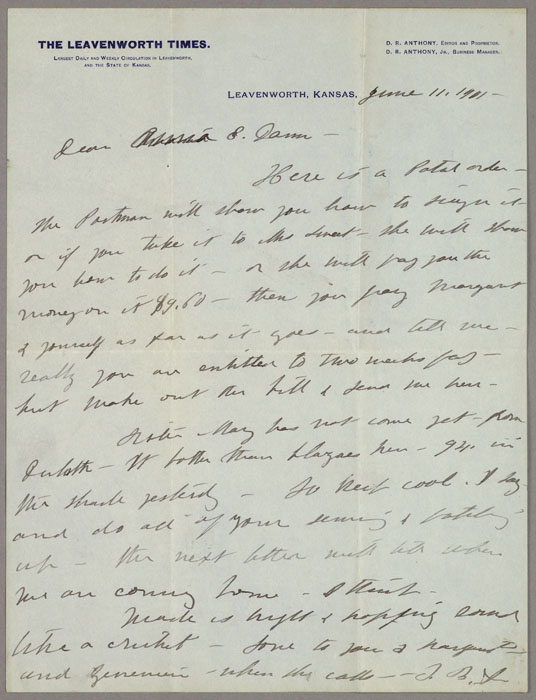 THE LEAVENWORTH TIMES.
LARGEST DAILY AND WEEKLY CIRCULATION IN LEAVENWORTH,
AND THE STATE OF KANSAS.
D. R. ANTHONY, EDITOR AND PROPRIETOR.
D. R. ANTHONY, JR., BUSINESS MANAGER.
LEAVENWORTH, KANSAS, June 11, 1901 -
Dear E. Dann -
Here is a Postal order -
the Postman will show you how to sign it
or if you take it to Mrs Sweet - she will show
you how to do it - or she will pay you the
money on it $9.60 - then you pay Margaret
& yourself as far as it goes - and tell me -
really you are entitled to two weeks pay -
but make out the bill & send me here -
Sister Mary has not come yet - from
Duluth - 94. in
the shade yesterday - So keep cool.
and do all of your sewing &
up - the next letter will tell when
we are coming home - I think -
Maude is bright & hopping around
like a cricket - love to you & Margaret
and Genevieve - when she calls -